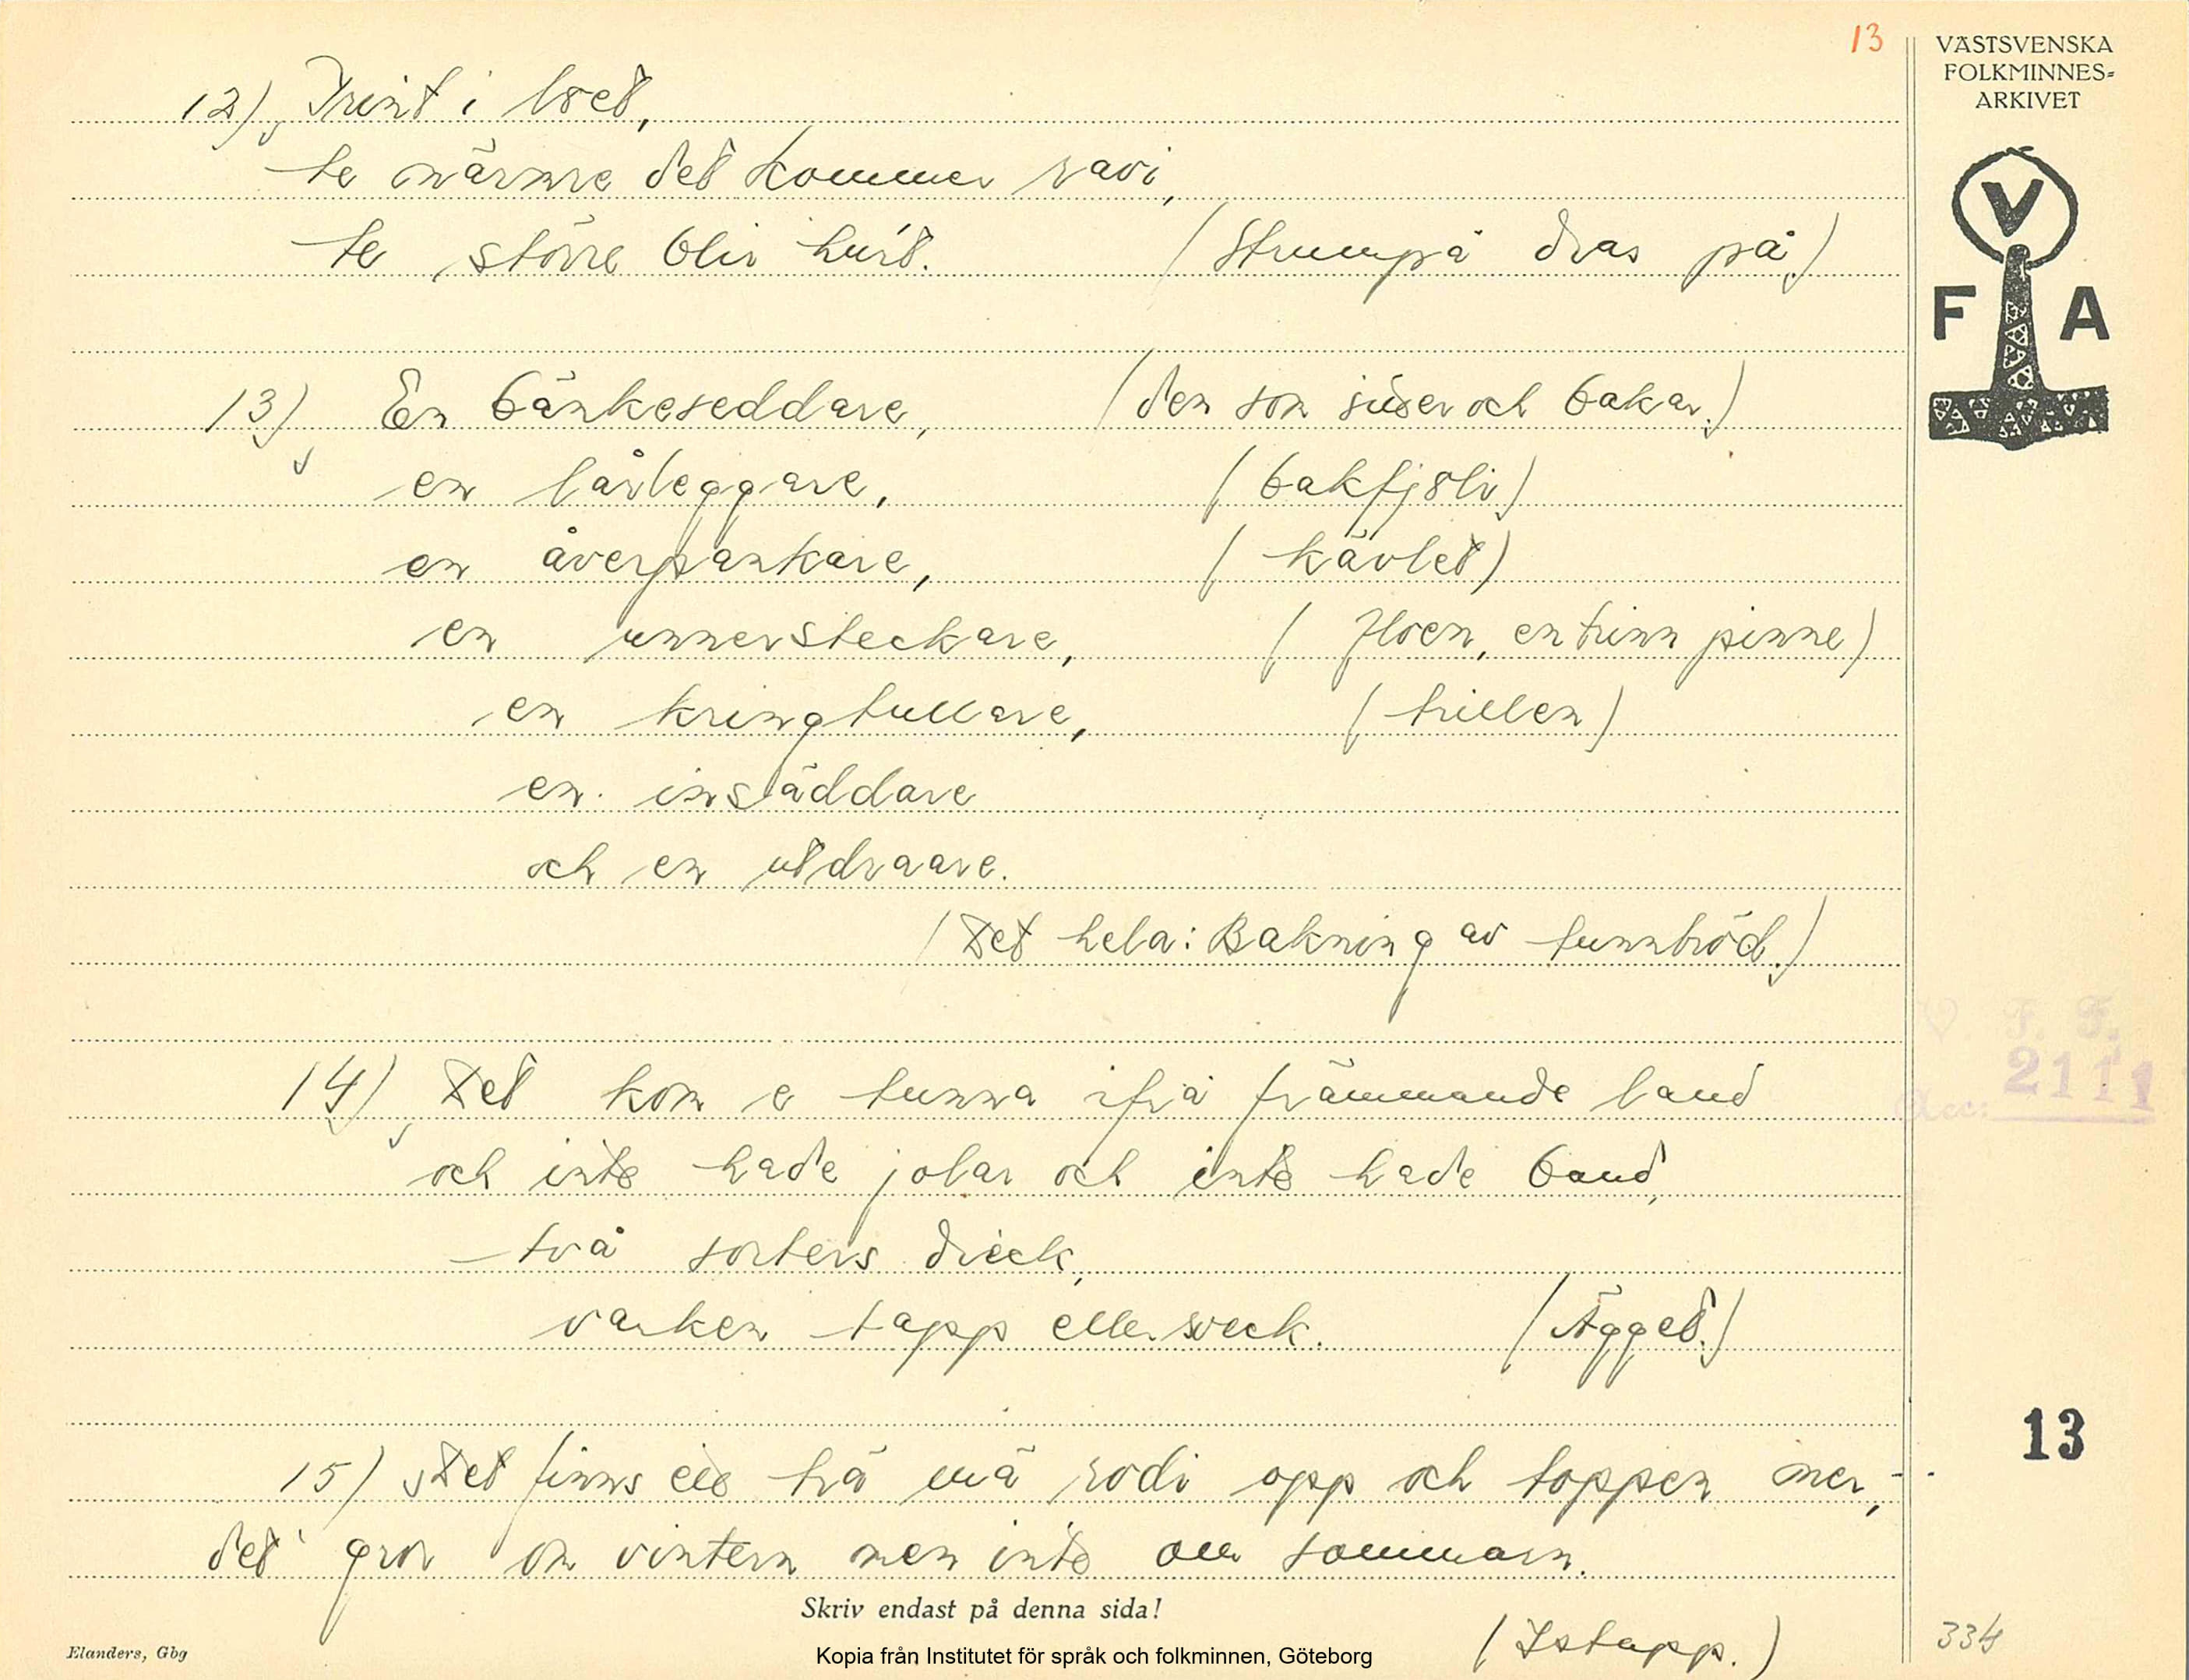 13
VÄSTSVENSKA
FOLKMINNES-
ARKIVET
V
F A
12) Trint i
te närmre det kommer ravi,
te större blir hu't. (Strumpå dras på.)
13) En bänkeseddare, (den som siser och bakar.)
en lårleggare, (bakfjöli)
en åverpankare, (kävlet)
en unnersteckare, (floen, en trinn pinne)
en kringtullare, (trillen)
en insläddare
och en utdraare.
(Det hela: Bakning av tunnbröd.)
14) Det kom e tunna ifrå främmande land
och inte hade jolar och inte hade band,
två sorters drick,
varken tapp eller sveck. (Ägget.)
15) Det finns ett trä mä rodi opp och toppen ner,
det gror om vintern men inte om sommarn.
(Istapp.)
V. F. F.
Acc: 2111
13
334
Skriv endast på denna sida!
Elanders, Gbg
Kopia från Institutet för språk och folkminnen, Göteborg